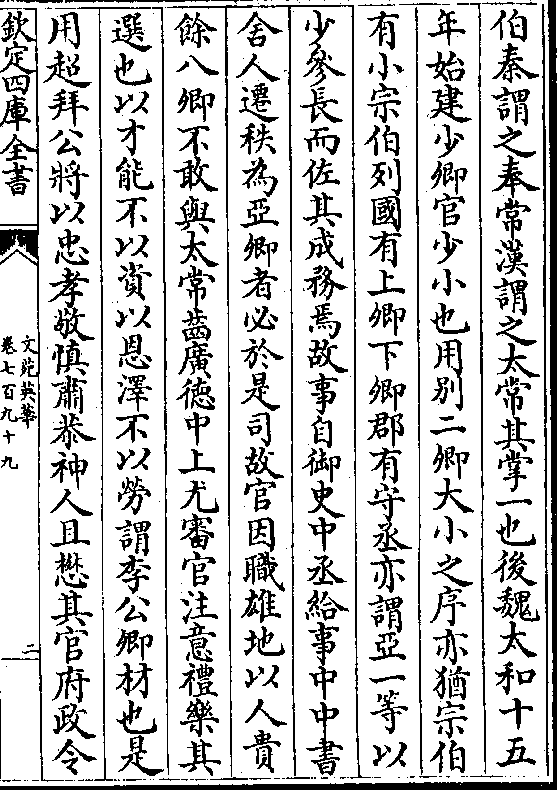 伯秦謂之奉常漢謂之太常其掌一也後魏太和十五
年始建少卿官少小也用别二卿大小之序亦猶宗伯
有小宗伯列國有上卿下卿郡有守丞亦謂亞一等以
少參長而佐其成務焉故事自御史中丞給事中中書
舍人遷秩為亞卿者必於是司故官因職雄地以人貴
餘八卿不敢與太常齒廣德中上尤審官注意禮樂其
選也以才能不以資以恩澤不以勞謂李公卿材也是
用超拜公將以忠孝敬慎肅恭神人且懋其官府政令
欽定四庫全書
文苑英華
卷七百九十九
二